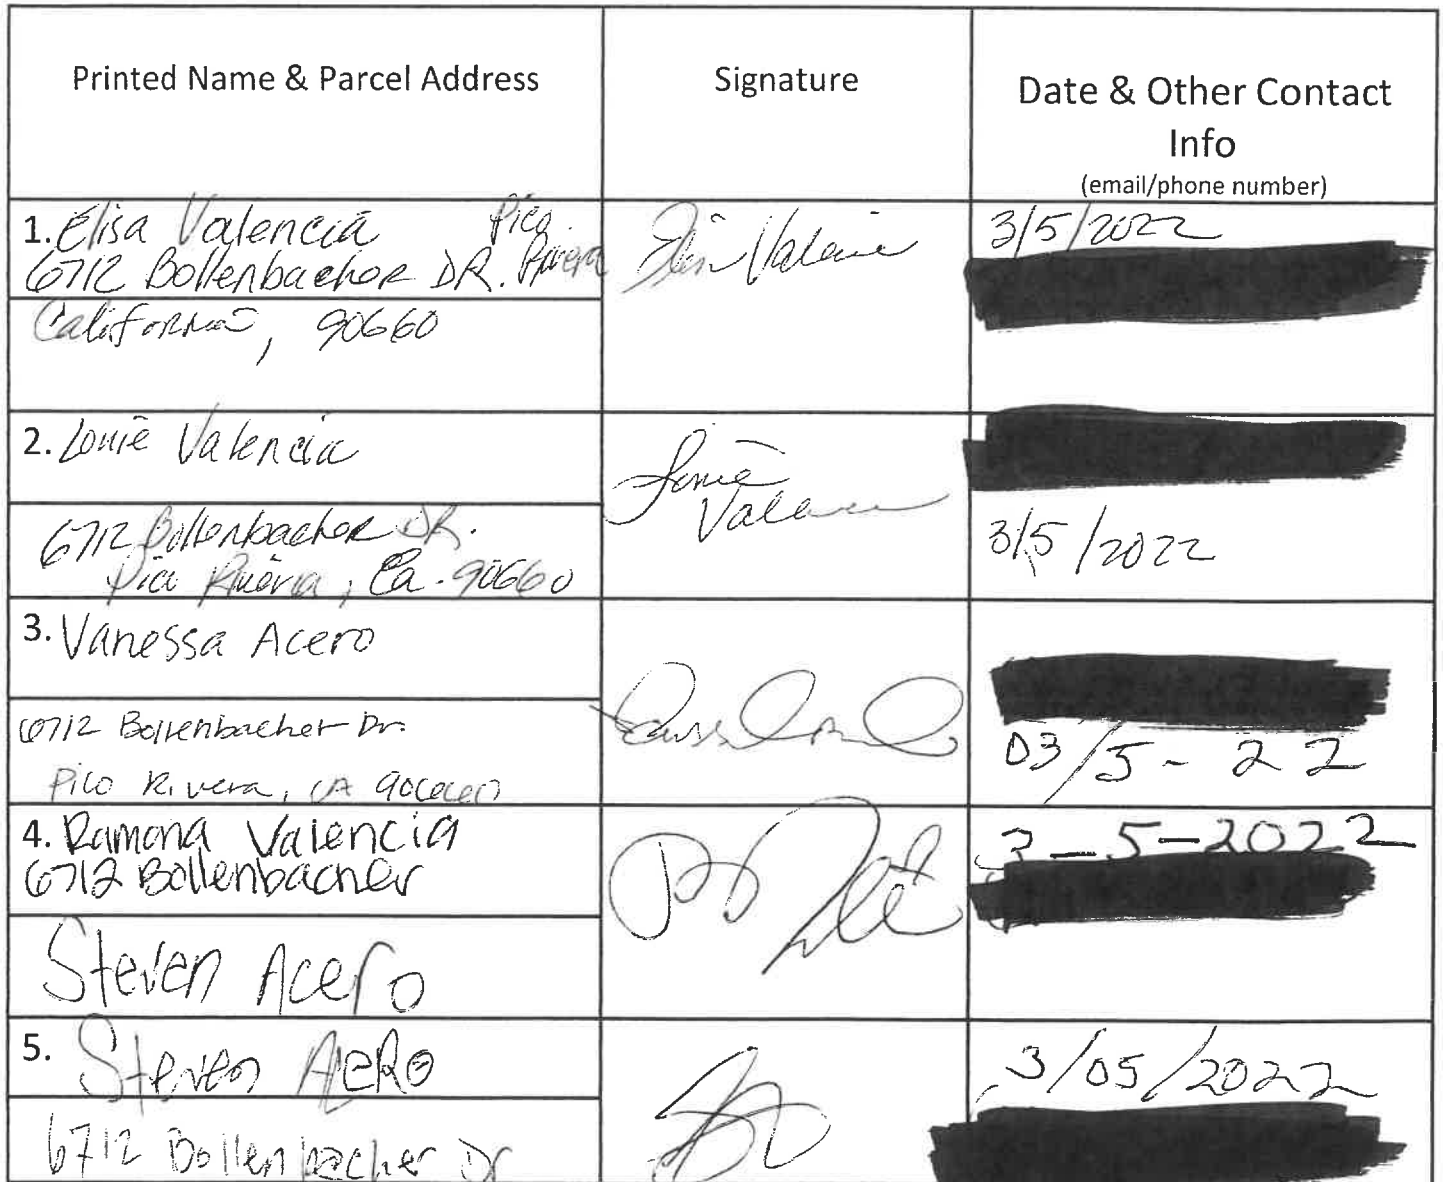 Printed Name & Parcel Address
Signature
Date & Other Contact
Info
(email/phone number)
1. Elisa Valencia Pico
6712 Bollenbacher DR. Rivera
California, 90660
Elisa Valencia
3/5/2022
2. Louie Valencia
6712 Bollenbacher DR.
Pico Rivera, Ca. 90660
Louie
Valencia
3/5/2022
3. Vanessa Acero
6712 Bollenbacher Dr.
Pico Rivera, CA 90660
03/5-22
4. Ramona Valencia
6712 Bollenbacher
Steven Acero
3-5-2022
5. Steven Acero
6712 Bollenbacher Dr
3/05/2022